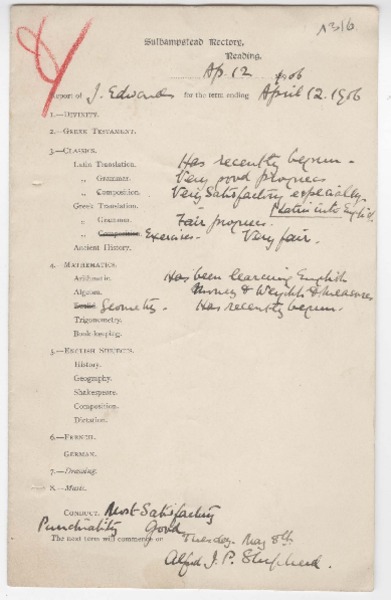 1316
Sulhampstead Rectory,
Reading.
Ap. 12 1906
Report of J. Edwards for the term ending April 12. 1906
1.—Divinity.
2.—Greek Testament.
3.—Classics.
Latin Translation. Has recently begun.
„ Grammar. Very good progress
„ Composition. Very Satisfactory especially
Greek Translation. Latin into English.
„ Grammar. Fair progress.
„ Composition. Exercises. Very fair.
Ancient History.
4.—Mathematics.
Arithmetic. Has been learning English
Algebra. Money & Weights & Measures
Geometry. Has recently begun.
Trigonometry.
Bookkeeping.
5.—English Subjects.
History.
Geography.
Shakespeare.
Composition.
Dictation.
6.—French.
German.
7.—Drawing.
8.—Music.
Conduct. Most Satisfactory
Punctuality Good
The next term will commence on Tuesday. May 8th.
Alfred J. P. Shepherd.